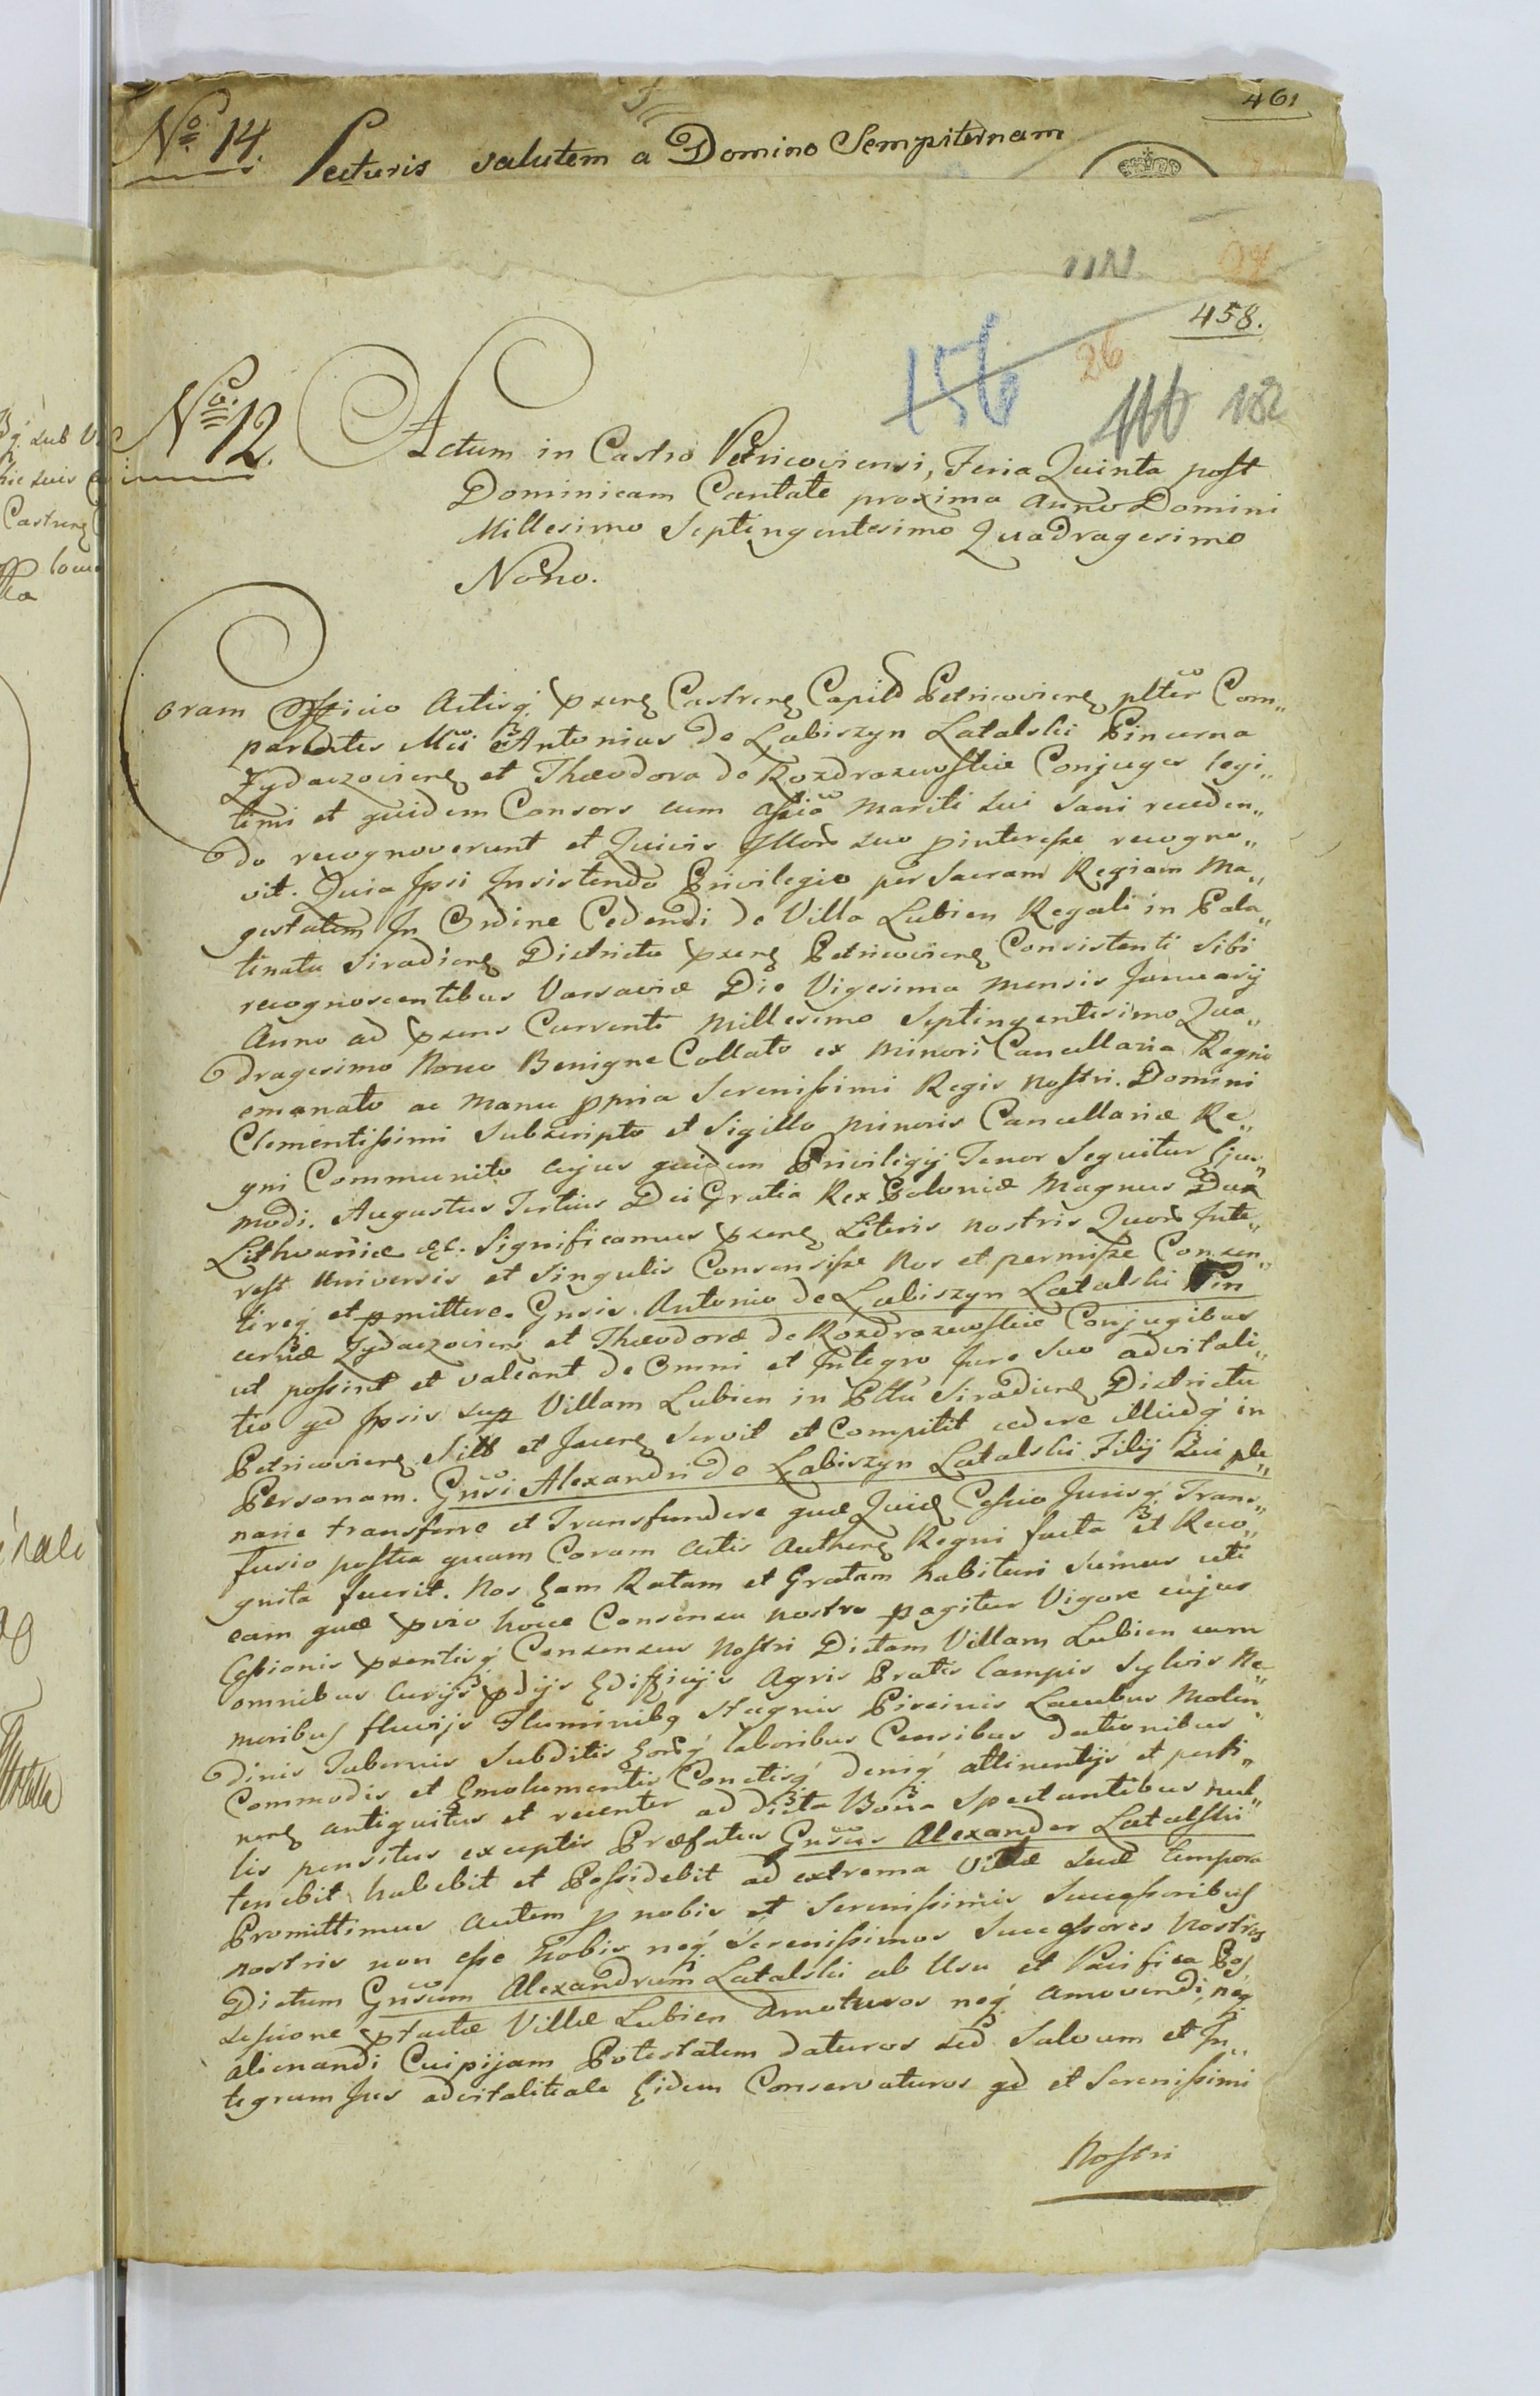 461
No 14. Lecturis salutem a Domino Sempiternam
458.
156
26
116 182
No 12.
Actum in Castro Petricoviensi, Feria Quinta post
Dominicam Cantate proxima Anno Domini
Millesimo Septingentesimo Quadragesimo
Nono.
Coram Officio Actisq́ pxens Castrens Capit Petricoviens plter Com„
parentes Mci Antonius de Łabiszyn Latalski Pincerna
Zydaczoviens et Theodora de Rozdrazewskie Conjuges legi„
timi et quidem Consors cum assia Mariti sui sani receden„
do recognoverunt et Quivis Illor suo pinteresse recogno„
vit. Quia Ipsi Insistendo Privilegio per Sacram Regiam Ma„
gestatem In Ordine Cedendi de Villa Lubien Regali in Pala„
tinatu Siradiens Districtu pxens Petricoviens Consistenti Sibi
recognoscentibus Varsaviæ Die Vigesima Mensis Januarij
Anno ad pxens Currente Millesimo Septingentesimo Qua„
dragesimo Nono Benigne Collato ex Minori Cancellaria Regni
emanato ac Manu ppria Serenissimi Regis Nostri Domini
Clementissimi Subscripto et Sigillo Minoris Cancellariæ Re„
gni Communito cujus quidem Privilegij Tenor Sequitur Ejus„
modi. Augustus Tertius Dei Gratia Rex Poloniæ Magnus Dux
Lithvaniæ &c. Significamus pxens Literis Nostris Quor Inte„
rest Universis et Singulis Consensisse Nos et permisse Consen„
tireq́ et pmittere. Gnsis. Antonio de Łabiszyn Latalski Pin
cernæ Zydaczoviens et Theodoræ de Rozdrazewskie Conjugibus
ut possint et valeant de Omni et Integro Jure Suo advitali„
tio qd Ipsis sup Villam Lubien in Pttu Siradiens Districtu
Petricoviens Sitt et Jacens Servit et Competit cedere illudq́ in
Personam. Gnsi Alexandri de Łabiszyn Latalski Filij Sui ple„
narie transferre et Transfundere quæ Quid Cessio Jurisq́ Trans„
fusio postea quam Coram Actis Authens Regni facta et Reco„
gnita fuerit. Nos Eam Ratam et Gratam habituri Sumus uti
eam quæ pvio hocce Consensu nostro pagitur Vigore cujus
Cessionis pxentisq́ Consensus Nostri Dictam Villam Lubien cum
omnibus Curijs pdijs Edifficijs Agris Pratis Campis Sylvis Ne„
moribus fluvijs Fluminibq Stagnis Piscinis Lacubus Molen„
dinis Tabernis Subditis Eorq́ laboribus Censibus dationibus
Commodis et Emolumentis Cunctisq́ deniq́ attinentijs et perti„
nens antiquitus et recenter ad dicta Bona Spectantibus nul„
lis penitus exceptis Præfatus Gnsus Alexander Latalski
tenebit habebit et Possidebit ad extrema Vitæ suæ tempora
Promittimus autem p nobis et Serenissimis Successoribus
nostris non esse Nobis neq́ Serenissimos Successores Nostros
Dictum Gnsum Alexandrum Latalski ab Usu et Pacifica Pos„
sessione pfactæ Villæ Lubien Amoturos neq́ amovendi, neq́
alienandi Cuipijam Potestatem daturos sed Salvum et In„
tegrum Jus advitalitiale Eidem Conservaturos qd et Serenissimi
Nostri